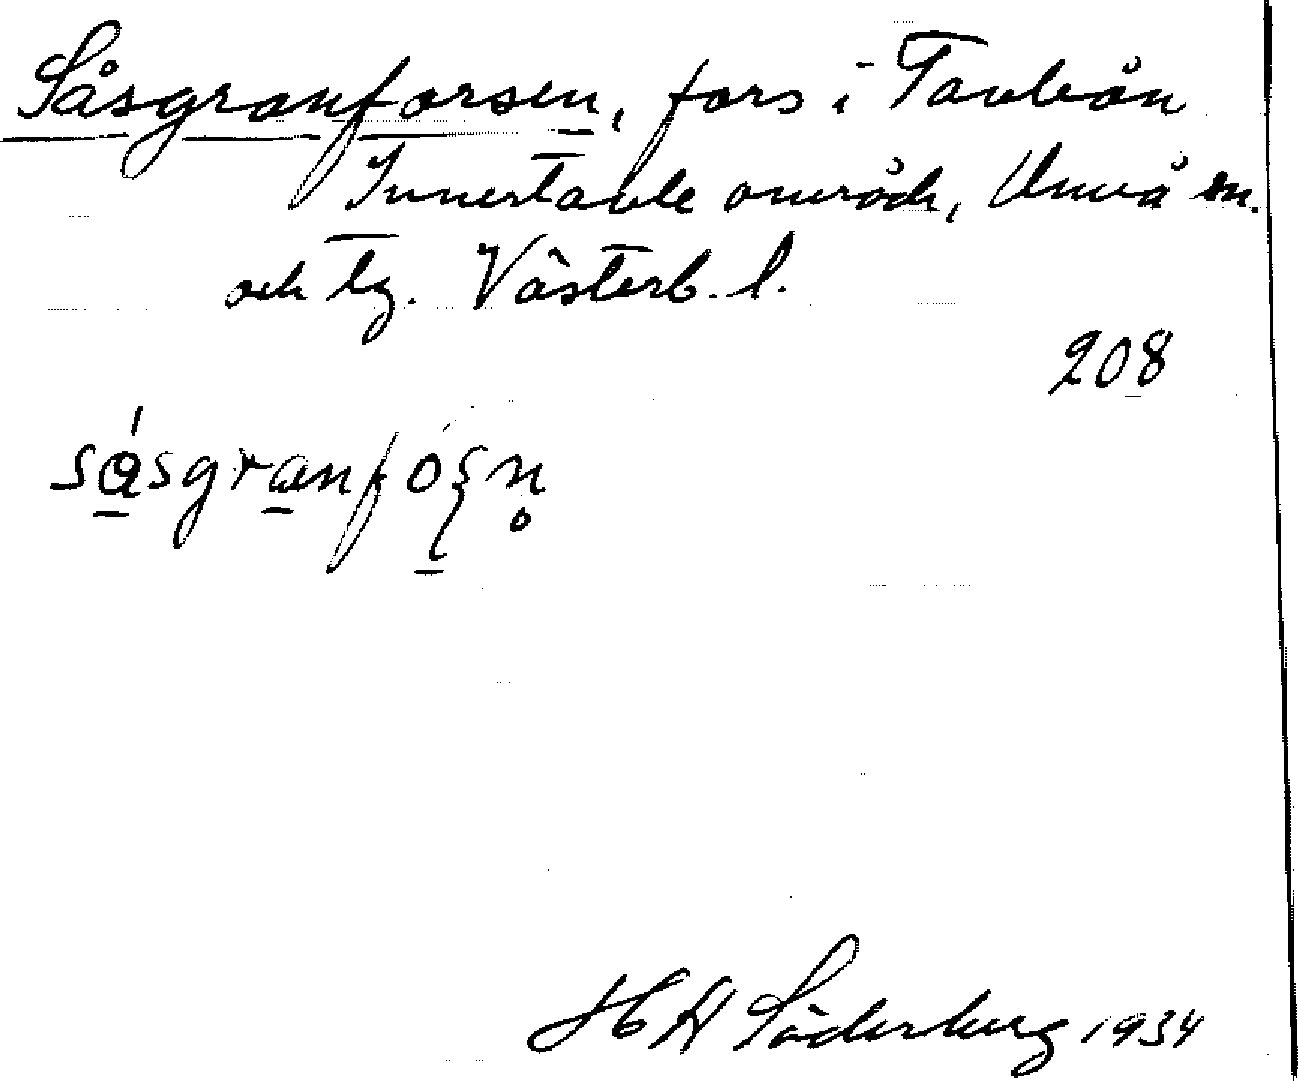 Såsgranforsen, fors i Tavleån
Innertavle område, Umeå sn.
och tg. Västerb. l.
208
sásgranfóʂn̥
H A Söderberg 1934